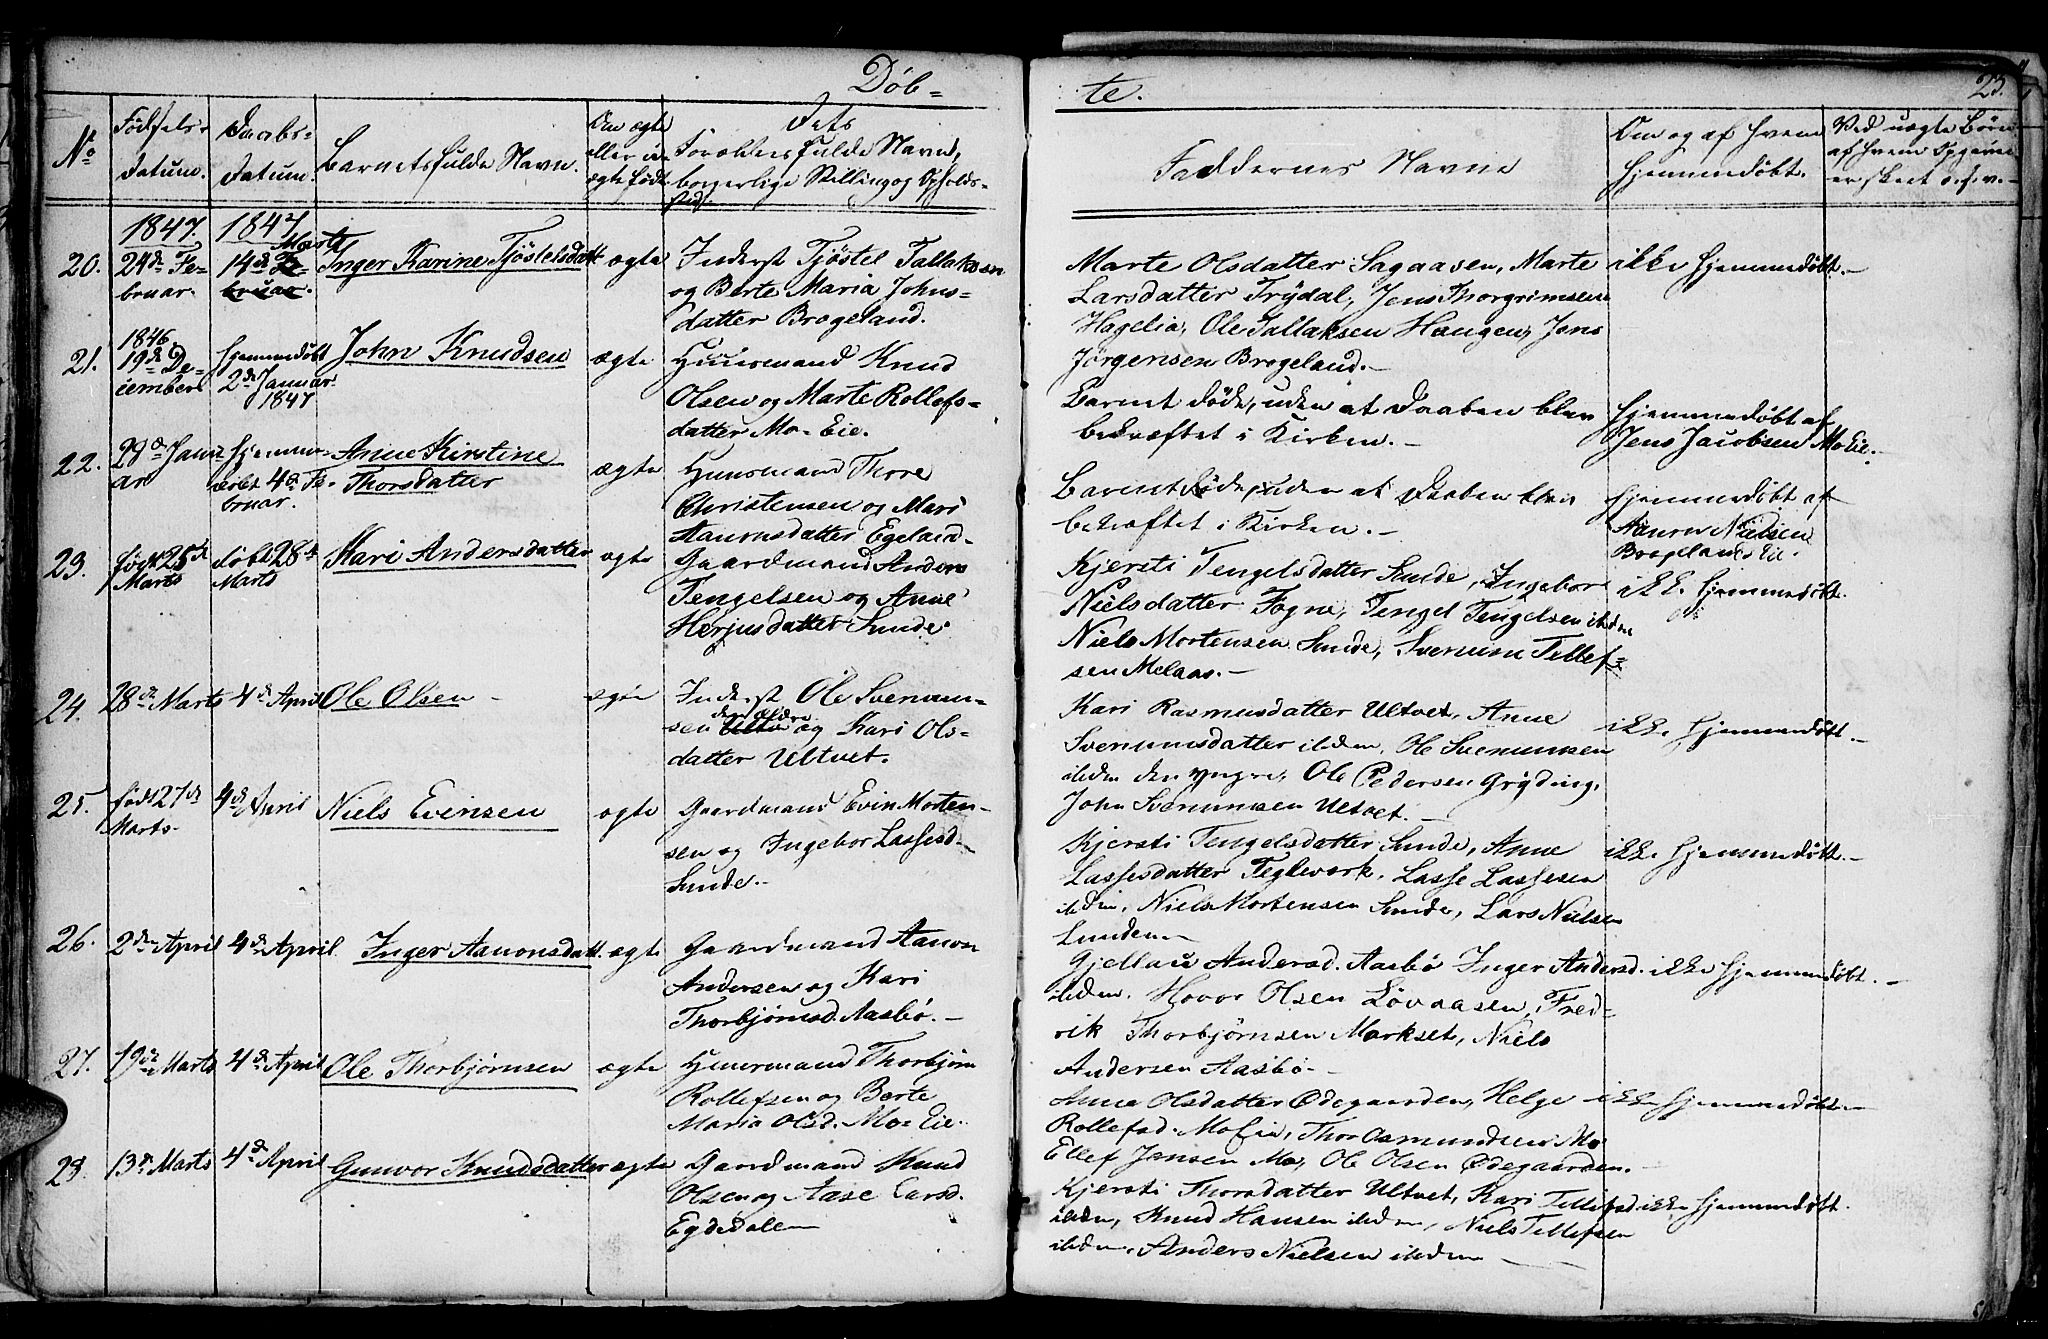 Døb=
te.
23.
No
Fødsels-
datum.
Daabs=
datum.
Barnets fulde Navn.
Om ægte
eller u-
ægte født
Dets
Forældres fulde Navn,
borgerlige Stilling og Opholds-
sted.
Faddernes Navne
Om og af hvem
hjemmedøbt.
Ved uægte Børn
af hvem Opgivel
er skeet o.s.v.
1847.
1847
20.
24de Fe-
bruar.
Marts
14de Fe-
bruar.
Inger Karine Tjøstelsdatt
ægte
Inderst Tjøstel Tallaksen
og Berte Maria Johns=
datter Brogeland.
Marte Olsdatter Sagaasen, Marte
Larsdatter Frydal, Jens Thorgrimsen
Hagelia, Ole Tallaksen Haugen, Jens
Jørgensen Brogeland.-
ikke hjemmedøbt.-
21.
1846
19de De-
cember
hjemmedøbt
2de Januar
1847
John Knudsen
ægte
Huusmand Knud
Olsen og Marte Rollefs=
datter Mo-Eie.
Barnet døde, uden at Daaben blev
bekræftet i Kirken.-
hjemmedøbt af
Jens Jacobsen Mo Eie.
22.
29de Janu-
ar
hjemme-
døbt 4de Fe-
bruar.
Anne Kirstine
Thorsdatter
ægte
Huusmand Thore
Christensen og Mari
Aanonsdatter Egeland.
Barnet døde, uden at Daaben blev
bekræftet i Kirken.-
hjemmedøbt af
Nielsen
Brogelands Eie.
23.
født 25de
Marts
døbt 28de
Marts
Kari Andersdatter
ægte
Gaardmand Anders
Tengelsen og Anne
Herjusdatter Sunde.
Kjersti Tengelsdatter Sunde, Ingebor
Nielsdatter Fogne, Tengel Tengelsen ibidem
Niels Mortensen Sunde, Svenum Tellef=
sen Melaas.-
ikke hjemmedøbt.
24.
28de Marts
4de April
Ole Olsen
ægte
Inderst Ole Svenum-
den ældre
sen Ultvet og Kari Ols-
datter Ultvet.
Kari Rasmusdatter Ultvet, Anne
Svenumsdatter ibidem, Ole Svenumsen
ibidem den yngre, Ole Pedersen Gryting,
John Svenumsen Ultvet.-
ikke hjemmedøbt.-
25.
født 27de
Marts
4de April
Niels Evensen
ægte
Gaardmand Even Morten-
sen og Ingebor Lassesd.
Sunde.-
Kjersti Tengelsdatter Sunde, Anne
Lassesdatter Teglverk, Lasse Lassesen
ibidem, Niels Mortensen Sunde, Lars Nielsen
Lunden-
ikke hjemmedøbt.-
26.
2den April
4de April
Inger Aanonsdatt.
ægte
Gaardmand Aanon
Andersen og Kari
Thorbjørnsd. Aasbø.-
Gjellau Andersd. Aasbø Inger Andersd.
ibidem, Hovor Olsen Løvaasen, Fred-
rik Thorbjørnsen Markset, Niels
Andersen Aasbø-
ikke hjemmedøbt.-
27.
19de Marts
4de April
Ole Thorbjørnsen
ægte
Huusmand Thorbjørn
Rollefsen og Berte
Maria Olsd. Mo-Eie.
Anne Olsdatter Ødegaarden, Helge
Rollefsd. Mo Eie, Thor Osmundsen Mo
Ellef Jansen Mo, Ole Olsen Ødegaarden.-
ikke hjemmedøbt.-
28.
13de Marts
4de April
Gunvor Knudsdatter
ægte
Gaardmand Knud
Olsen og Aase Larsd.
Egdedalen
Kjersti Thorsdatter Ultvet, Kari Tellefsd
ibidem, Knud Hansen ibidem, Niels Tellefsen
ibidem, Anders Nielsen ibidem
ikke hjemmedøbt.